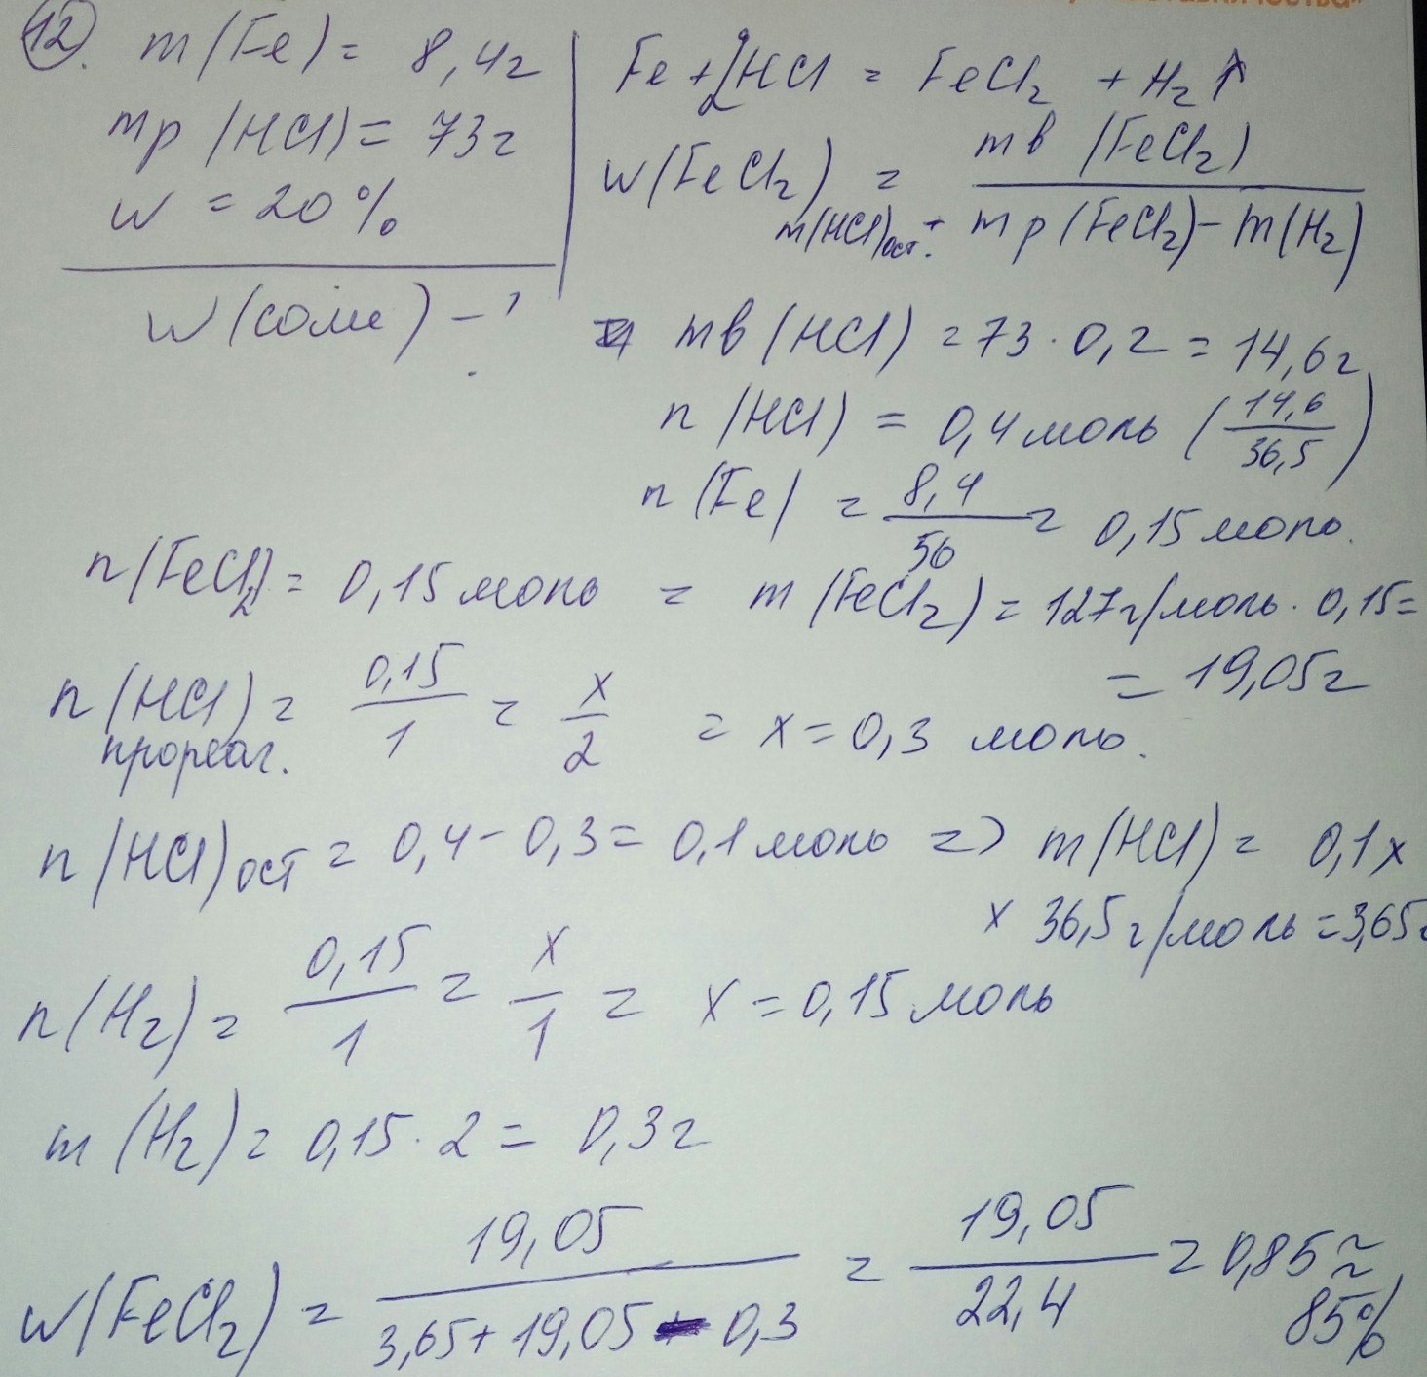 12. m(Fe) = 8,4г
mр (HCl) = 73г
w = 20%
w(соли) - ?
Fe + 2HCl = FeCl₂ + H₂↑
w(FeCl₂) = mв (FeCl₂) / m(HCl)ост. + mр(FeCl₂) - m(H₂)
mв (HCl) = 73 · 0,2 = 14,6г
n (HCl) = 0,4 моль (14,6/36,5)
n (Fe) = 8,4/56 = 0,15 моль.
n(FeCl₂) = 0,15 моль = m (FeCl₂) = 127г/моль · 0,15 =
= 19,05г
n(HCl) = 0,15/1 = x/2 = x = 0,3 моль.
прореаг.
n(HCl)ост = 0,4 - 0,3 = 0,1 моль => m(HCl) = 0,1 x
x 36,5г/моль = 3,65г
n(H₂) = 0,15/1 = x/1 = x = 0,15 моль
m (H₂) = 0,15 · 2 = 0,3г
w(FeCl₂) = 19,05 / 3,65 + 19,05 - 0,3 = 19,05 / 22,4 = 0,85 ≈
≈ 85%